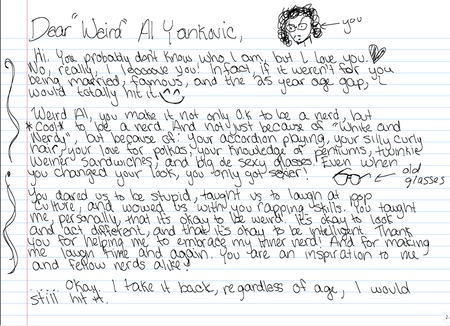 Dear "Weird" Al Yankovic,
← you
Hi. You probably don't know who I am, but I love you.
No, really, I looooove you! Infact, if it weren't for you
being married, famous, and the 25 year age gap, I
would totally hit it.
Weird Al, you make it not only O.K to be a nerd, but
*cool* to be a nerd. And not just because of "White and
Nerdy", but because of: Your accordion playing, your silly curly
hair, your love for polkas, your knowledge of Pentiums, twinkie
weiner sandwiches, and big ole sexy glasses. Even when
you changed your look, you only got sexier!
← old
glasses
You dared us to be stupid, taught us to laugh at pop
culture, and wowed us with your rapping skills. You taught
me, personally, that its okay to be weird. It's okay to look
and act different, and that it's okay to be intelligent. Thank
you for helping me to embrace my inner nerd! And for making
me laugh time and again. You are an inspiration to me
and fellow nerds alike!
..... Okay. I take it back, regardless of age, I would
still hit it.